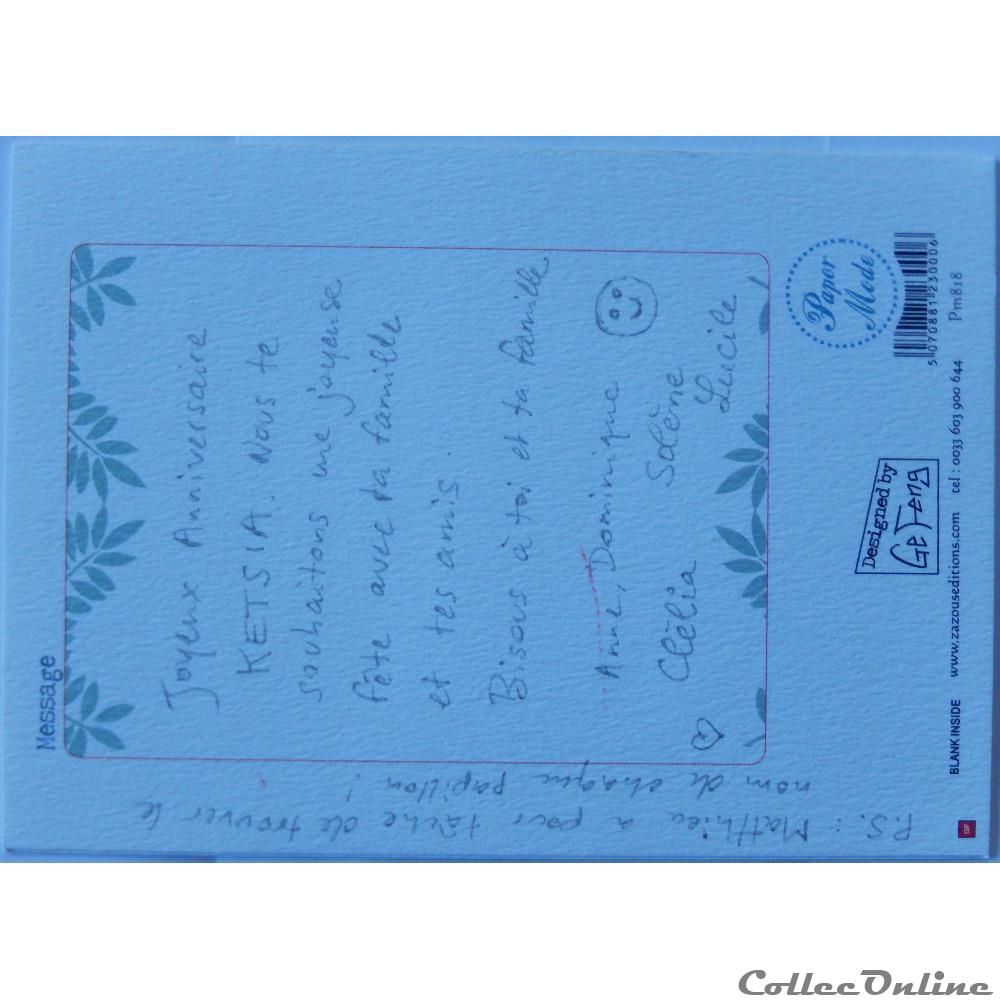 Message
Joyeux Anniversaire
KETSIA. Nous te
souhaitons une joyeuse
fête avec ta famille
et tes amis.
Bisous à toi et ta famille
Anne, Dominique
Clèlia Solène
Lucile !
P.S. : Matthieu a pour tâche de trouver le
nom de chaque papillon !
Paper
Mode
5 070881 230006
Pm818
Designed by
GeFeng
BLANK INSIDE www.zazouseditions.com tel : 0033 603 900 644
CollecOnline